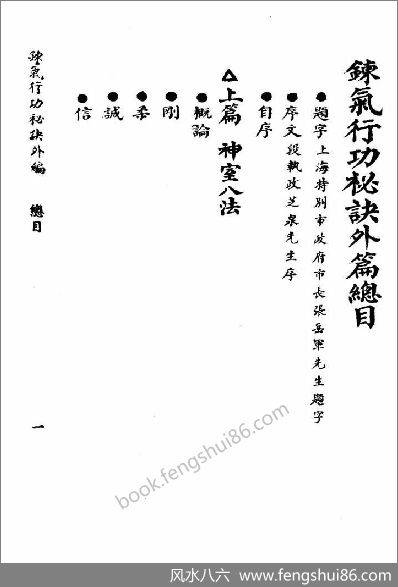 鍊氣行功秘訣外篇總目
●題字上海特別市政府市長張岳軍先生題字
●序文段執政芝泉先生序
●自序
△上篇 神室八法
●概論
●剛
●柔
●誠
●信
鍊氣行功秘訣外編 總目 一
book.fengshui86.com
风水八六 www.fengshui86.com